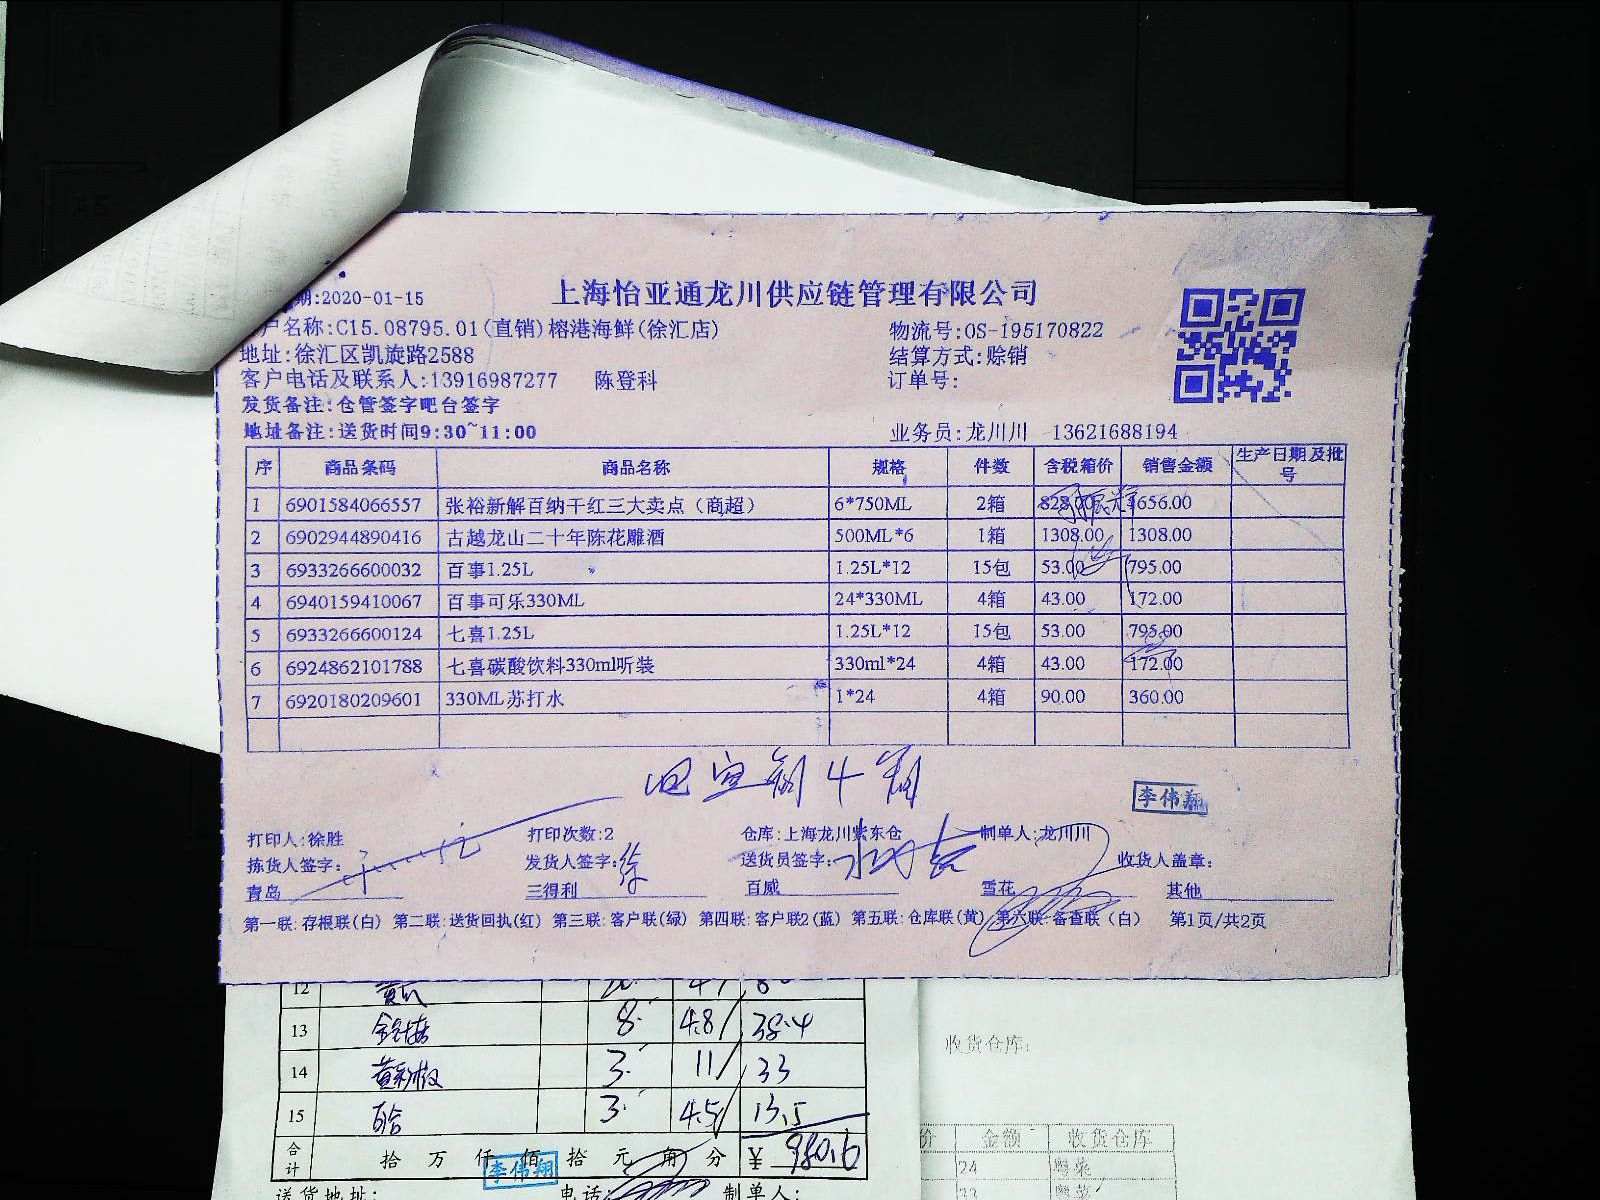 上海怡亚通龙川供应链管理有限公司
期:2020-01-15
户名称:C15.08795.01(直销)榕港海鲜(徐汇店) 物流号:OS-195170822
地址:徐汇区凯旋路2588 结算方式:赊销
客户电话及联系人:13916987277 陈登科 订单号:
发货备注:仓管签字吧台签字
地址备注:送货时间9:30~11:00 业务员:龙川川 13621688194
序 商品条码 商品名称 规格 件数 含税箱价 销售金额 生产日期及批号
1 6901584066557 张裕新解百纳干红三大卖点（商超） 6*750ML 2箱 828.00 1656.00
2 6902944890416 古越龙山二十年陈花雕酒 500ML*6 1箱 1308.00 1308.00
3 6933266600032 百事1.25L 1.25L*12 15包 53.00 795.00
4 6940159410067 百事可乐330ML 24*330ML 4箱 43.00 172.00
5 6933266600124 七喜1.25L 1.25L*12 15包 53.00 795.00
6 6924862101788 七喜碳酸饮料330ml听装 330ml*24 4箱 43.00 172.00
7 6920180209601 330ML苏打水 1*24 4箱 90.00 360.00
李伟翔
打印人:徐胜 打印次数:2 仓库:上海龙川紫东仓 制单人:龙川川
拣货人签字: 发货人签字: 送货员签字: 收货人盖章:
青岛 三得利 百威 雪花 其他
第一联:存根联(白) 第二联:送货回执(红) 第三联:客户联(绿) 第四联:客户联2(蓝) 第五联:仓库联(黄) 第六联:备查联（白） 第1页/共2页
12 黄瓜
13 8 4.8 38.4
14 黄彩椒 3 11 33
15 百合 3 4.5 13.5
合计 拾 万 仟 佰 拾 元 角 分 ¥ 980.6
李伟翔
送货地址: 电话: 制单人:
收货仓库:
价 金额 收货仓库
24
33